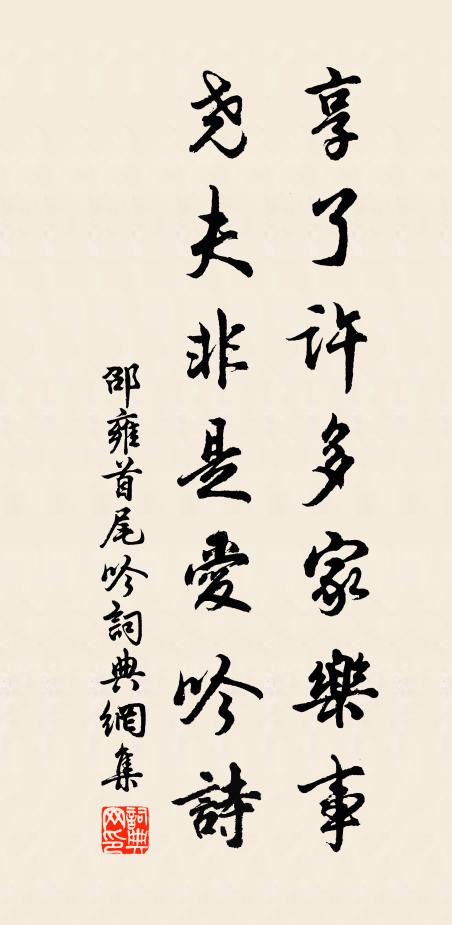 享了許多家樂事
尭夫非是愛吟詩
邵雍首尾吟詞典網集
詞典網印